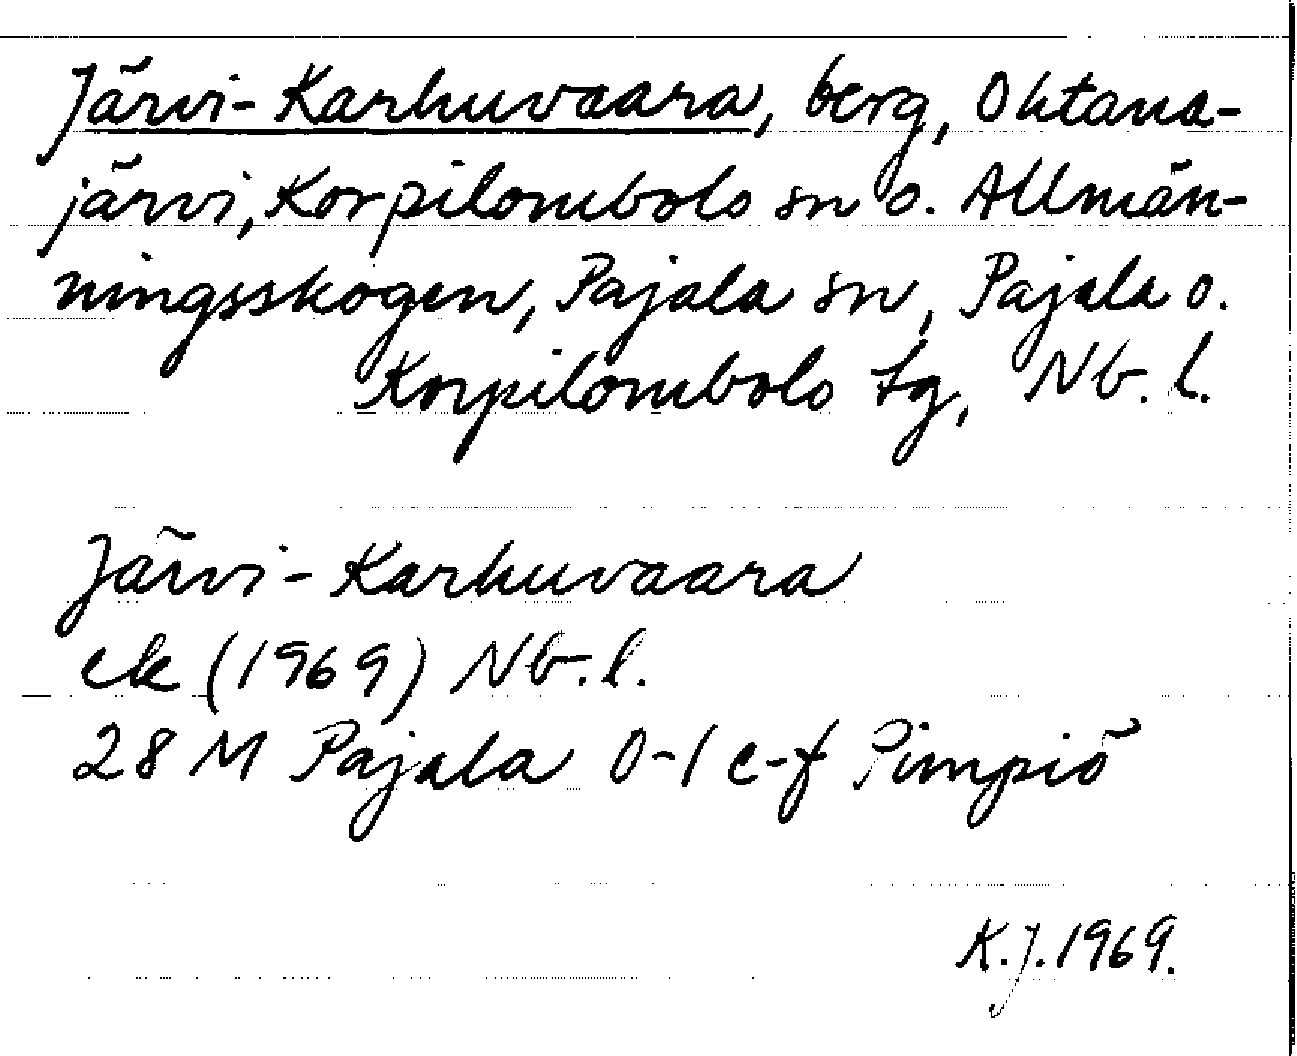 Järvi-Karhuvaara, berg, Ohtana-
järvi, Korpilombolo sn o. Allmän-
ningsskogen, Pajala sn, Pajala o.
Korpilombolo tg, Nb. l.
Järvi-Karhuvaara
ek (1969) Nb. l.
28 M Pajala 0-1 e-f Pimpiö
K.J. 1969.